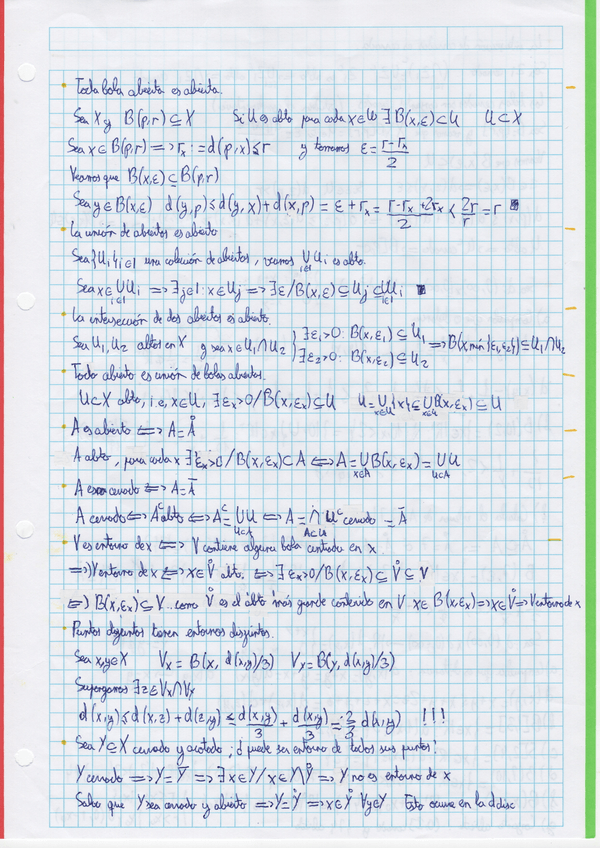 Toda bola abierta es abierta.
Sea X y B(p,r) ⊆ X Si U es abto para cada x∈U ∃ B(x,ε)⊂U U⊂X
Sea x∈B(p,r) => r_x := d(p,x)≤r y tomamos ε = (r-r_x)/2
Veamos que B(x,ε)⊆B(p,r)
Sea y∈B(x,ε) d(y,p)≤d(y,x)+d(x,p) = ε+r_x = (r-r_x+2r_x)/2 < 2r/r = r
La unión de abiertos es abierto
Sea {U_i}_{i∈I} una colección de abiertos, veamos ⋃_{i∈I} U_i es abto.
Sea x∈⋃_{i∈I} U_i => ∃j∈I: x∈U_j => ∃ε/B(x,ε)⊆U_j ⊆ ⋃_{i∈I} U_i
La intersección de dos abiertos es abierto.
Sea U_1, U_2 abtos en X y sea x∈U_1∩U_2 } ∃ε_1>0: B(x,ε_1)⊆U_1 ∃ε_2>0: B(x,ε_2)⊆U_2 => B(x, mín{ε_1,ε_2})⊆U_1∩U_2
Todo abierto es unión de bolas abiertas.
U⊂X abto, i.e, x∈U, ∃ε_x>0/B(x,ε_x)⊆U U=⋃_{x∈U}{x}⊆⋃_{x∈U}B(x,ε_x)⊆U
A es abierto <=> A=Å
A abto, para cada x ∃ε_x>0/B(x,ε_x)⊂A <=> A=⋃_{x∈A}B(x,ε_x)=⋃_{U⊂A}U
A es cerrado <=> A=Ā
A cerrado <=> A^c abto <=> A^c=⋃_{U⊂A}U <=> A=⋂_{A⊂U} U^c cerrado = Ā
V es entorno de x <=> V contiene alguna bola centrada en x
=>) V entorno de x <=> x∈V̊ abto. <=> ∃ε_x>0/B(x,ε_x)⊆V̊⊆V
<=) B(x,ε_x)⊆V. como V̊ es el abto más grande contenido en V x∈B(x,ε_x)=>x∈V̊=>V entorno de x
Puntos disjuntos tienen entornos disjuntos.
Sea x,y∈X V_x = B(x, d(x,y)/3) V_y=B(y, d(x,y)/3)
Supongamos ∃z∈V_x∩V_y
d(x,y)≤d(x,z)+d(z,y) ≤ d(x,y)/3 + d(x,y)/3 = 2/3 d(x,y) !!!
Sea Y⊆X cerrado y acotado ¿puede ser entorno de todos sus puntos?
Y cerrado => Y=Ȳ => ∃x∈Y/x∈Y\Y̊ => Y no es entorno de x
Salvo que Y sea cerrado y abierto => Y=Y̊ => x∈Y̊ ∀y∈Y Esto ocurre en la ddisc